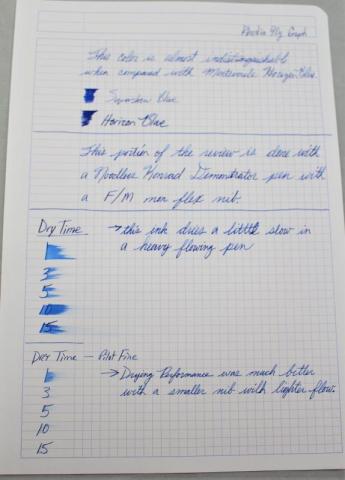 Rhodia 90g Graph
This color is almost indistinguishable
when compared with Monteverde Horizon Blue.
Blue
Horizon Blue
This portion of the review is done with
a Noodlers Konrad Demonstrator pen with
a F/M non flex nib.
Dry Time → this ink dries a little slow in
a heavy flowing pen
1
3
5
10
15
Dry Time — Pilot Fine
1 → Drying Performance was much better
3 with a smaller nib with lighter flow.
5
10
15